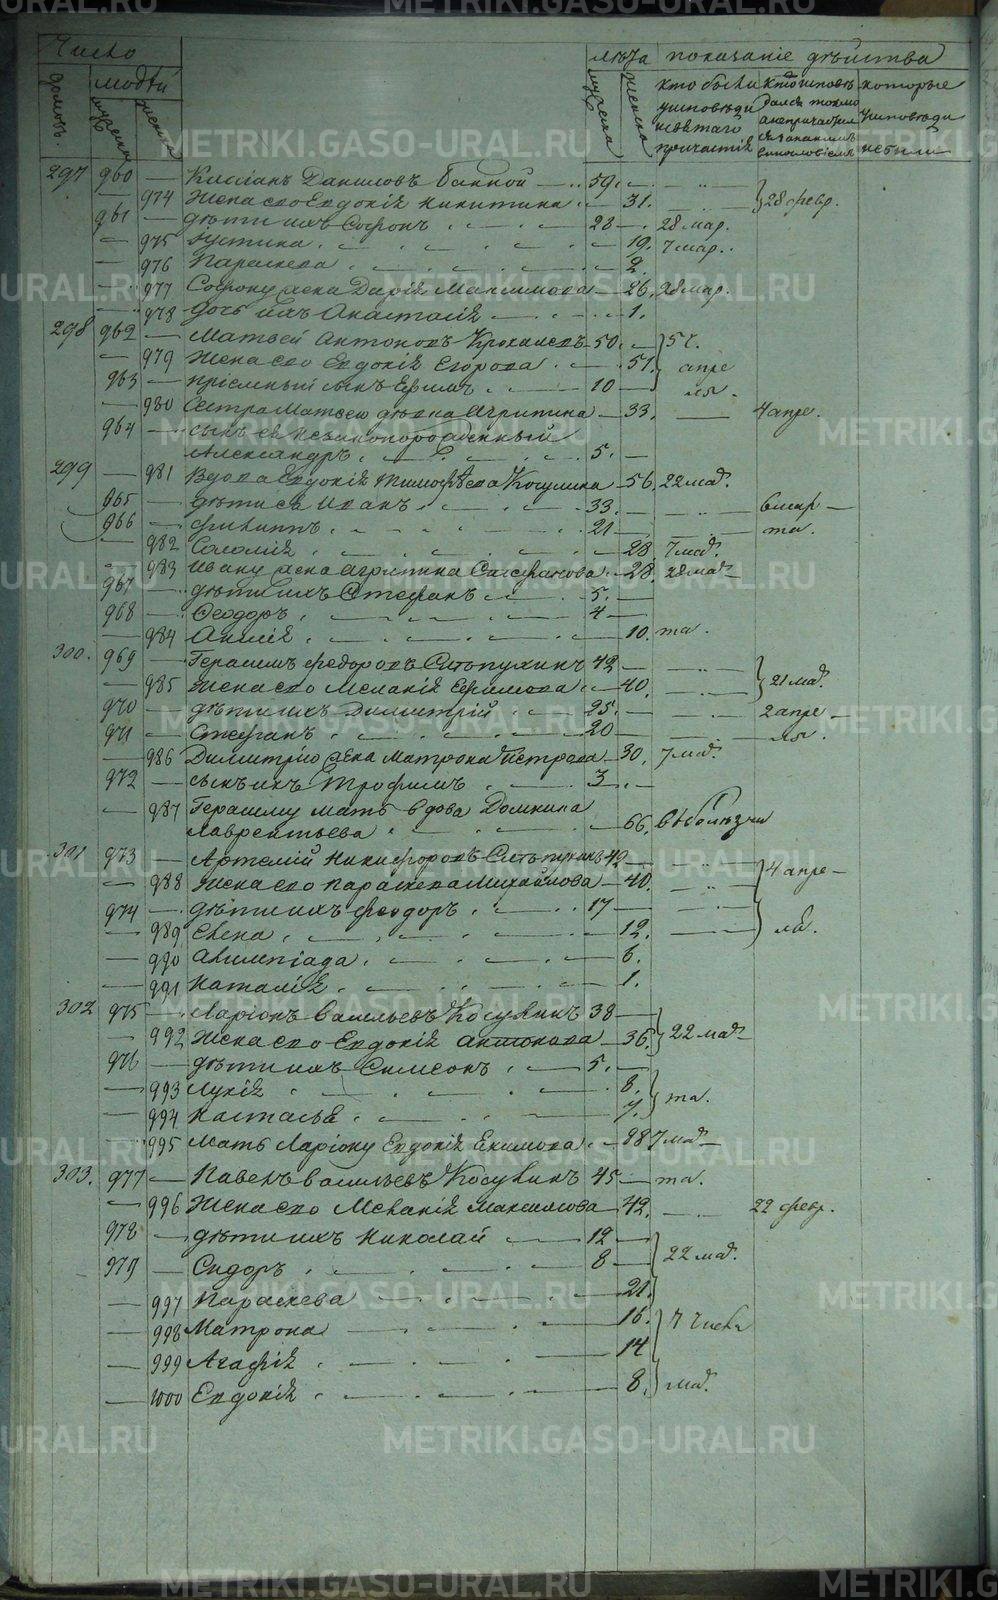 Число
лѣта показаніе дѣйства
домовъ людей
мужеска женска
мужеска женска
кто были у исповѣди и святаго причастія
кто исповѣдался токмо а не причастился и за какимъ виннословіемъ
которые у исповѣди не были
297 960 — Кассіанъ Даниловъ Банной 59. —
— 974 Жена его Евдокія Никитина — 31. } 28 февр.
961 — дѣти ихъ Софронъ 28 — 28 мар.
— 975 Іустина — 19. 7 мар.
— 976 Параскева — 2.
— 977 Софрону жена Дарія Максимова — 26. 28 мар.
— 978 дочь ихъ Анастасія — 1.
298 962 — Матвей Антоновъ 50. — } 5 ч.
— 979 Жена его Евдокія Егорова — 51. апре
963 — пріемный сынъ Ефимъ 10 — ля.
— 980 Сестра Матвею дѣвка Агрипина — 33. — 4 апре.
964 — сынъ ея незаконнорожденный
Александръ 5. —
299 — 981 Вдова Евдокія Тимофѣева Косулина — 56. 22 мар.
965 — дѣти ея Иванъ 33. — 6 мар —
966 — Филиппъ 21 — та.
— 982 Соломія — 23 7 мар.
— 983 Ивану жена Агрипина Стефанова — 28. 28 мар —
967 — дѣти ихъ Стефанъ 5. —
968 — Феодоръ 4 —
— 984 Анисія — 10. та.
300. 969 — Герасимъ Федоровъ Слѣпухинъ 42 —
— 985 Жена его Меланія Ефимова — 40. } 21 мар.
970 — дѣти ихъ Димитрій 25. — 2 апре —
971 — Стефанъ 20 — ля.
— 986 Димитрію жена Матрона Петрова — 30. 7 мар.
972 — сынъ ихъ Трофимъ 3. —
— 987 Герасиму мать вдова Домника
Лаврентьева — 66. въ болѣзни
301 973 — Артемій Никифоровъ Слѣпухинъ 42 —
— 988 Жена его Параскева Михайлова — 40. } 4 апре —
974 — дѣти ихъ Феодоръ 17 —
— 989 Елена — 12. } ля.
— 990 Олимпіада — 6.
— 991 Наталія — 1.
302 975 — Ларіонъ Васильевъ Косулинъ 38 —
— 992 Жена его Евдокія Антонова — 36. } 22 мар —
976 — дѣти ихъ Симеонъ 5. —
— 993 Лукія — 8. } та.
— 994 Настасья — 7.
— 995 Мать Ларіону Евдокія Екимова — 98 7 мар —
303. 977 — Павелъ Васильевъ Косулинъ 45 — та.
— 996 Жена его Меланія Максимова — 42. — 22 февр.
978 — дѣти ихъ Николай 12 —
979 — Сидоръ 8 — } 22 мар.
— 997 Параскева — 21.
— 998 Матрона — 16. } 7 числа
— 999 Агафія — 14
— 1000 Евдокія — 8. } мар.
METRIKI.GASO-URAL.RU